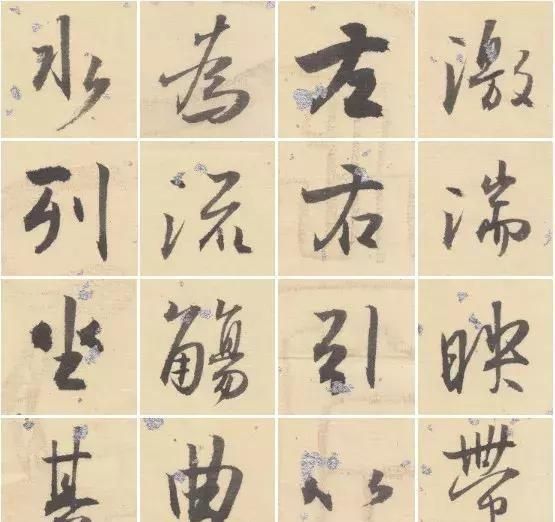 激湍映帶
左右引以
為流觴曲
水列坐其